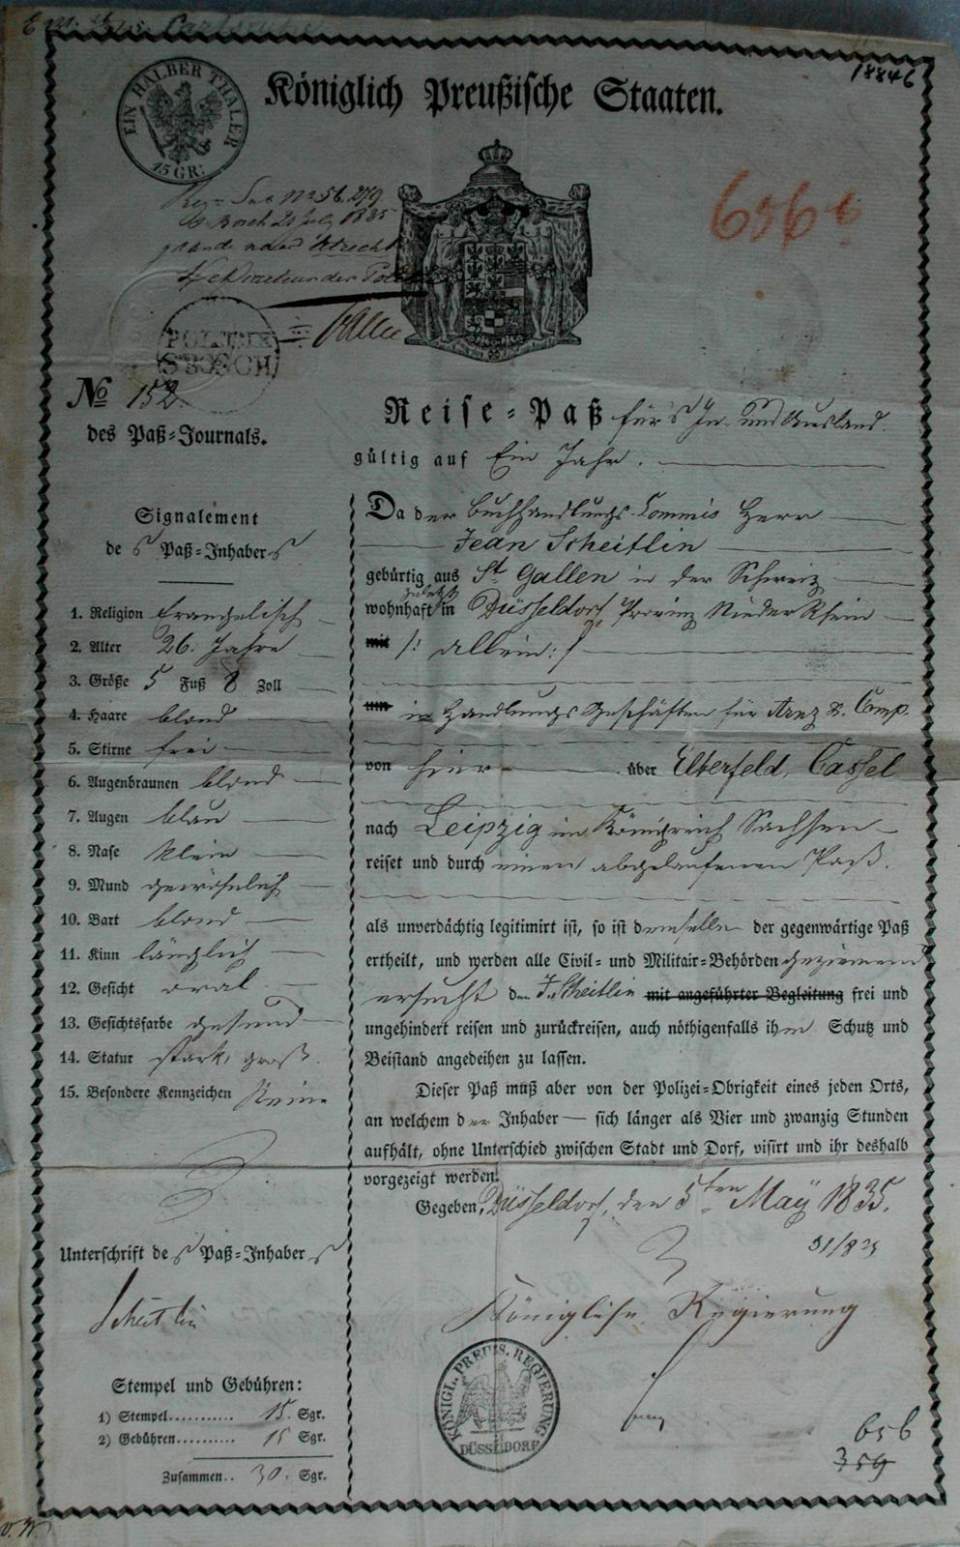 18846
EIN HALBER THALER
15 GR:
Königlich Preußische Staaten.
1835
POLITIE
S'BOSCH
No 152.
des Paß-Journals.
Reise-Paß für's In- und Ausland.
gültig auf Ein Jahr.
Signalement
des Paß-Inhabers
1. Religion Evangelisch
2. Alter 26. Jahre
3. Größe 5 Fuß 8 Zoll
4. Haare blond
5. Stirne frei
6. Augenbraunen blond
7. Augen blau
8. Nase klein
9. Mund gewöhnlich
10. Bart blond
11. Kinn länglich
12. Gesicht oval
13. Gesichtsfarbe gesund
14. Statur stark, groß.
15. Besondere Kennzeichen Keine
Unterschrift des Paß-Inhabers
Scheitlin
Stempel und Gebühren:
1) Stempel........... 15. Sgr.
2) Gebühren.......... 15 Sgr.
Zusammen.. 30. Sgr.
Da der Buchhandlungs-Commis Herr
Jean Scheitlin
gebürtig aus St. Gallen in der Schweiz
zuletzt
wohnhaft in Düsseldorf, Provinz Nieder Rhein
mit /: allein :/
um in Handlungs Geschäften für Arnz & Comp.
von hier über Elberfeld, Cassel
nach Leipzig im Königreich Sachsen
reiset und durch einen abgelaufenen Paß.
als unverdächtig legitimirt ist, so ist demselben der gegenwärtige Paß
ertheilt, und werden alle Civil- und Militair-Behörden geziemend
ersucht den J. Scheitlin mit angeführter Begleitung frei und
ungehindert reisen und zurückreisen, auch nöthigenfalls ihm Schutz und
Beistand angedeihen zu lassen.
Dieser Paß muß aber von der Polizei-Obrigkeit eines jeden Orts,
an welchem der Inhaber sich länger als Vier und zwanzig Stunden
aufhält, ohne Unterschied zwischen Stadt und Dorf, visirt und ihr deshalb
vorgezeigt werden.
Gegeben, Düsseldorf, den 5ten May 1835.
Königliche Regierung
KÖNIGL. PREUS. REGIERUNG
DÜSSELDORF
656
359